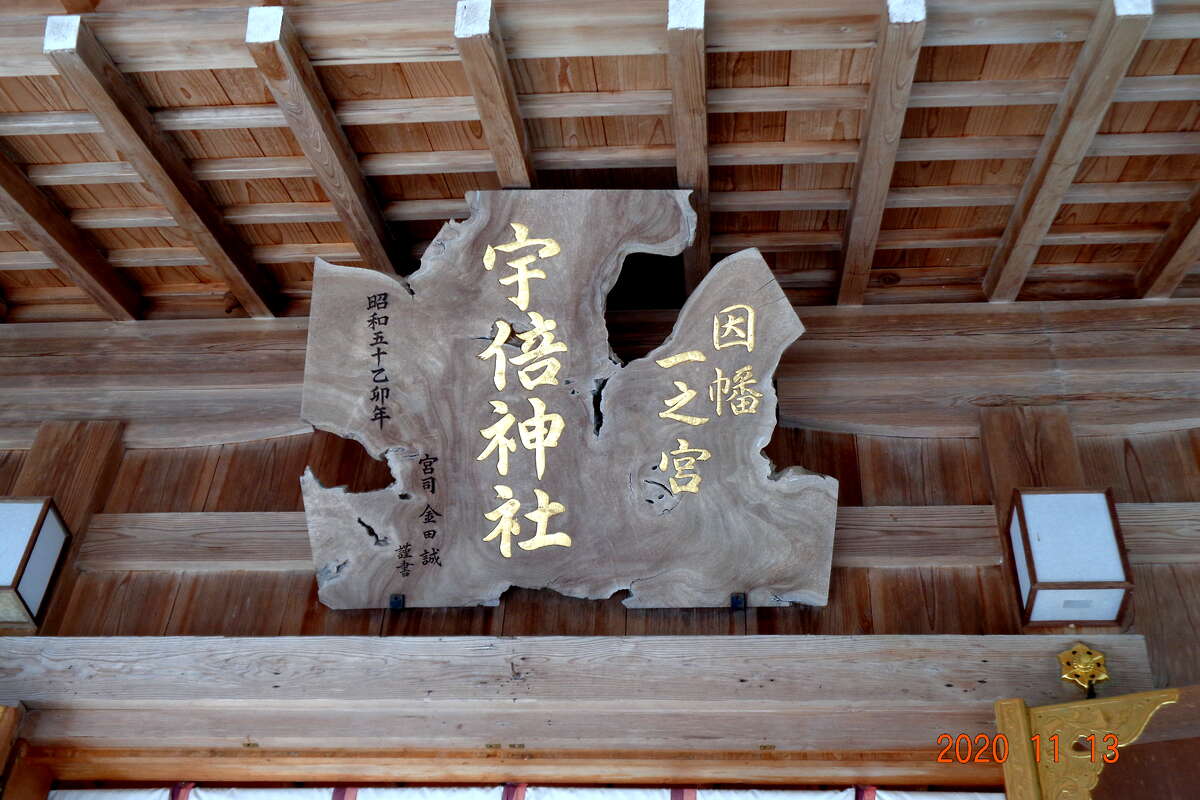 因幡
一之宮
宇倍神社
昭和五十乙卯年
宮司 金田 誠
謹書
2020 11 13